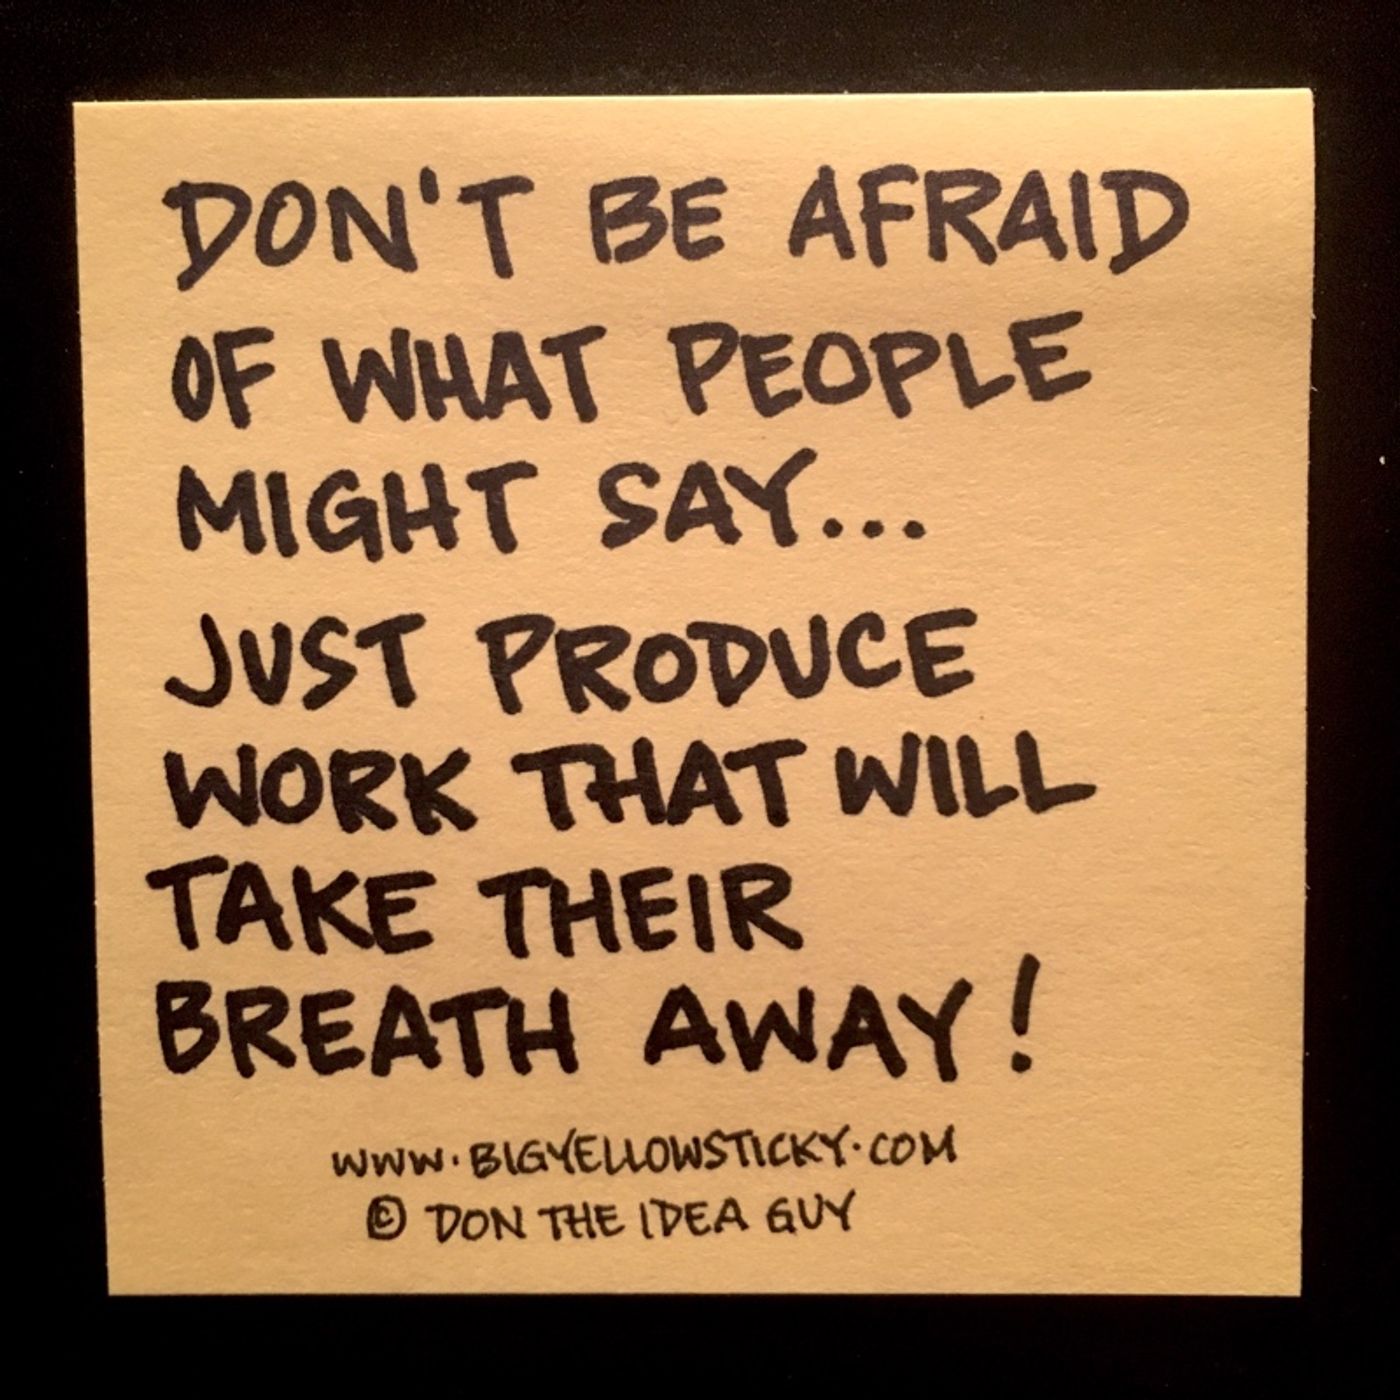 DON'T BE AFRAID
OF WHAT PEOPLE
MIGHT SAY...
JUST PRODUCE
WORK THAT WILL
TAKE THEIR
BREATH AWAY!
WWW.BIGYELLOWSTICKY.COM
© DON THE IDEA GUY